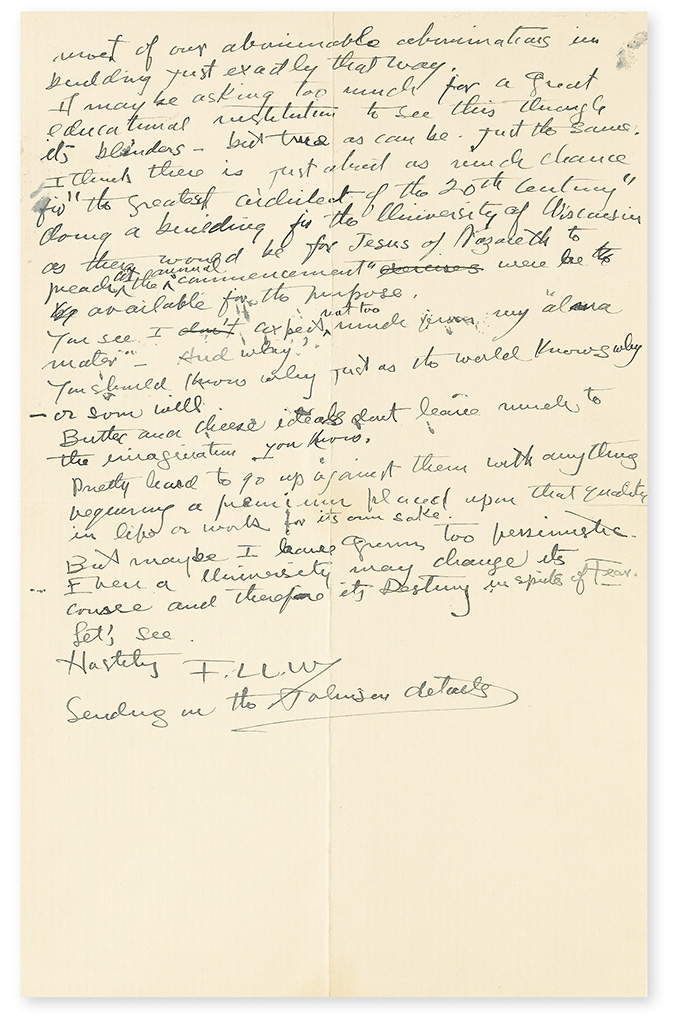 most of our abominable abominations in
building just exactly that way.
It may be asking too much for a great
educational institution to see this through
its blinders – but true as can be. just the same.
I think there is just about as much chance
for "the greatest architect of the 20th century"
doing a building for the University of Wisconsin
as there would be for Jesus of Nazareth to
preach the annual "commencement" exercises were he to
be available for the purpose.
You see I don't expect not too much from my "alma
mater" – And why?
You should know why just as the world knows why
– or soon will
Butter and cheese ideals dont leave much to
the imagination you know.
Pretty hard to go up against them with anything
requiring a premium placed upon that quality
in life or work for its own sake.
But maybe I have grown too pessimistic.
Even a University may change its
course and therefore its Destiny in spite of Fear.
Let's see
Hastily F.LL.W
Sending on the Johnson details